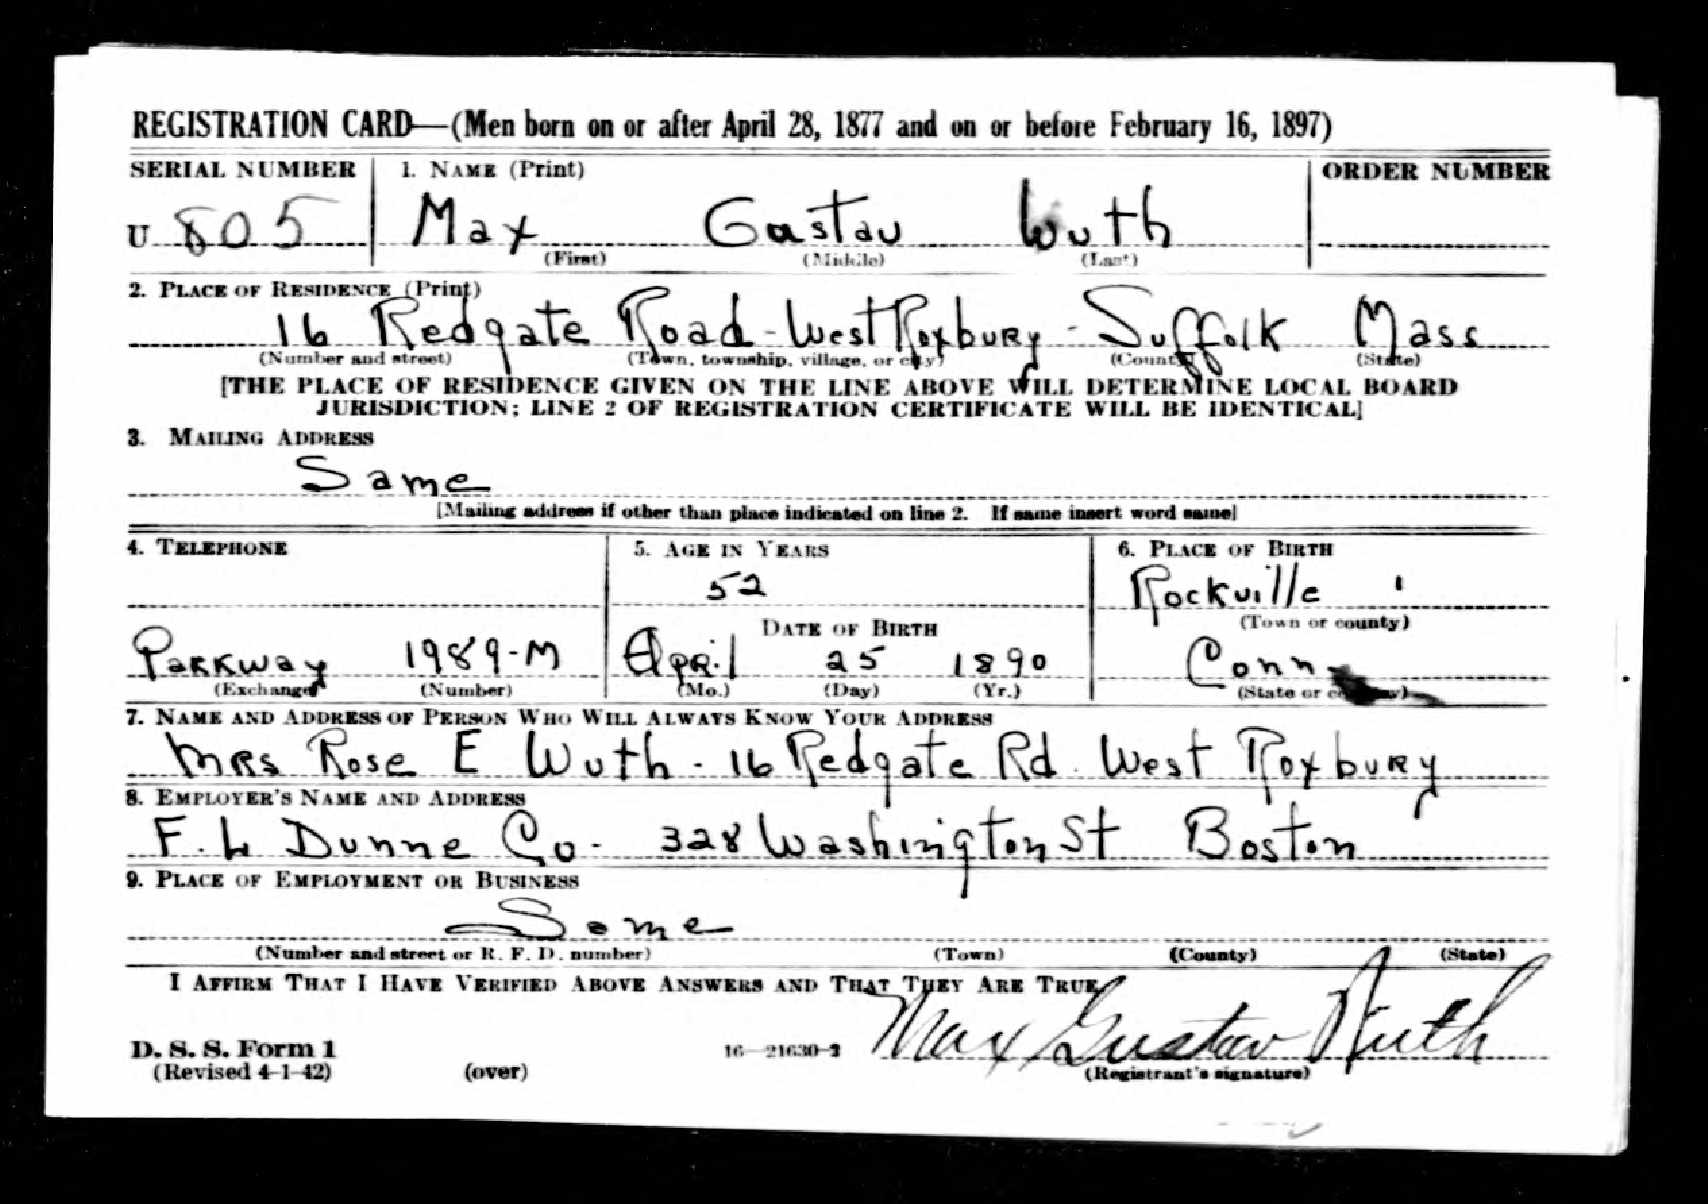 REGISTRATION CARD—(Men born on or after April 28, 1877 and on or before February 16, 1897)
SERIAL NUMBER 1. NAME (Print) ORDER NUMBER
U 805 Max Gustav Wuth
(First) (Middle) (Last)
2. PLACE OF RESIDENCE (Print)
16 Redgate Road - West Roxbury - Suffolk Mass
(Number and street) (Town, township, village, or city) (County) (State)
[THE PLACE OF RESIDENCE GIVEN ON THE LINE ABOVE WILL DETERMINE LOCAL BOARD
JURISDICTION; LINE 2 OF REGISTRATION CERTIFICATE WILL BE IDENTICAL]
3. MAILING ADDRESS
Same
[Mailing address if other than place indicated on line 2. If same insert word same]
4. TELEPHONE 5. AGE IN YEARS 6. PLACE OF BIRTH
52 Rockville
DATE OF BIRTH (Town or county)
Parkway 1989-M April 25 1890 Conn
(Exchange) (Number) (Mo.) (Day) (Yr.) (State or country)
7. NAME AND ADDRESS OF PERSON WHO WILL ALWAYS KNOW YOUR ADDRESS
Mrs Rose E Wuth - 16 Redgate Rd. West Roxbury
8. EMPLOYER'S NAME AND ADDRESS
F. L Dunne Co. 328 Washington St Boston
9. PLACE OF EMPLOYMENT OR BUSINESS
Same
(Number and street or R. F. D. number) (Town) (County) (State)
I AFFIRM THAT I HAVE VERIFIED ABOVE ANSWERS AND THAT THEY ARE TRUE.
Max Gustav Wuth
D. S. S. Form 1 16—21630-2
(Revised 4-1-42) (over) (Registrant's signature)